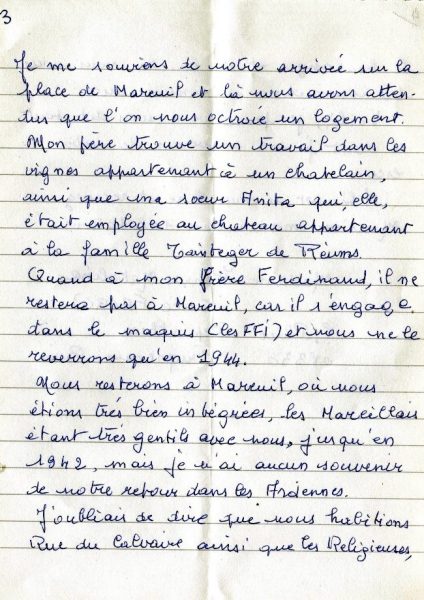 3
Je me souviens de notre arrivée sur la
place de Mareuil et là nous avons atten-
dus que l'on nous octroie un logement.
Mon père trouve un travail dans les
vignes appartenant à un chatelain,
ainsi que ma soeur Anita qui, elle,
était employée au chateau appartenant
à la famille de Reims.
Quand à mon frère Ferdinand, il ne
restera pas à Mareuil, car il s'engage
dans le maquis (les FFI) et nous ne le
reverrons qu'en 1944.
Nous resterons à Mareuil, où nous
étions très bien intégrées, les Mareillais
étant très gentils avec nous, jusqu'en
1942, mais je n'ai aucun souvenir
de notre retour dans les Ardennes.
J'oubliais de dire que nous habitions
Rue du Calvaire ainsi que les Religieuses,